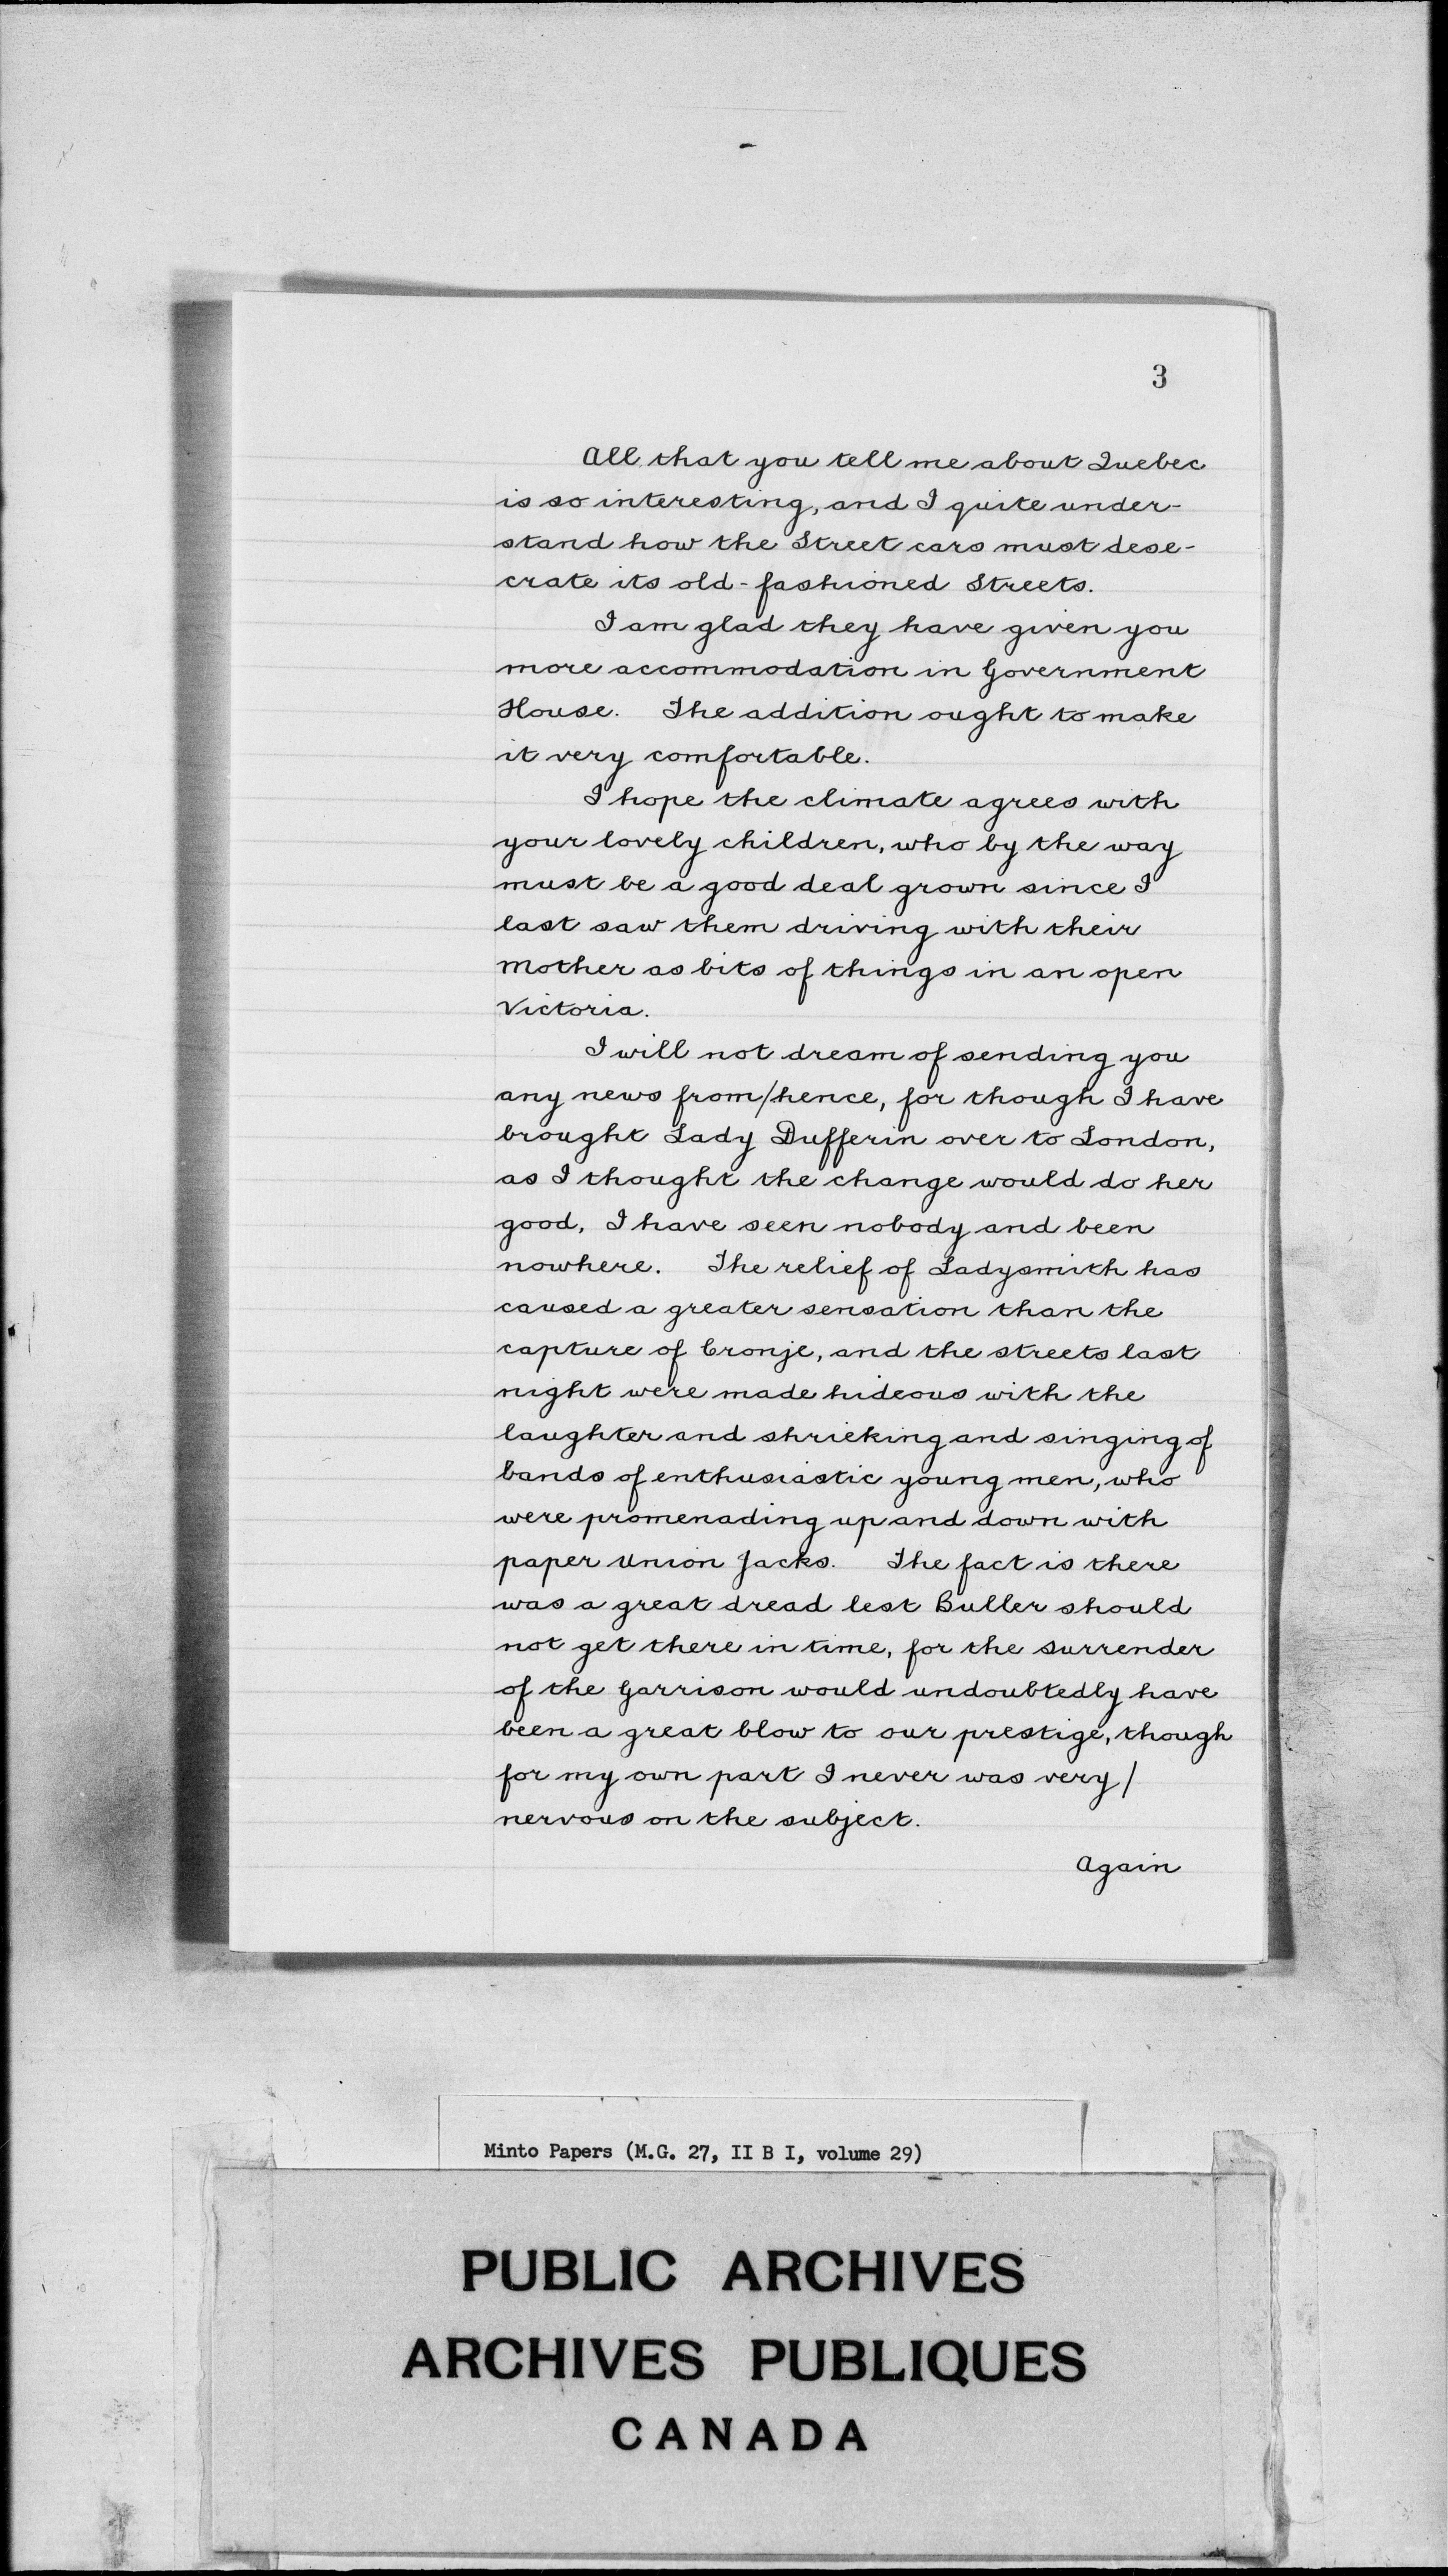 3
All that you tell me about Quebec
is so interesting, and I quite under-
stand how the Street cars must dese-
crate its old-fashioned Streets.
I am glad they have given you
more accommodation in Government
House. The addition ought to make
it very comfortable.
I hope the climate agrees with
your lovely children, who by the way
must be a good deal grown since I
last saw them driving with their
Mother as bits of things in an open
Victoria.
I will not dream of sending you
any news from/hence, for though I have
brought Lady Dufferin over to London,
as I thought the change would do her
good, I have seen nobody and been
nowhere. The relief of Ladysmith has
caused a greater sensation than the
capture of Cronje, and the streets last
night were made hideous with the
laughter and shrieking and singing of
bands of enthusiastic young men, who
were promenading up and down with
paper Union Jacks. The fact is there
was a great dread lest Buller should
not get there in time, for the surrender
of the Garrison would undoubtedly have
been a great blow to our prestige, though
for my own part I never was very/
nervous on the subject.
Again
Minto Papers (M.G. 27, II B I, volume 29)
PUBLIC ARCHIVES
ARCHIVES PUBLIQUES
CANADA